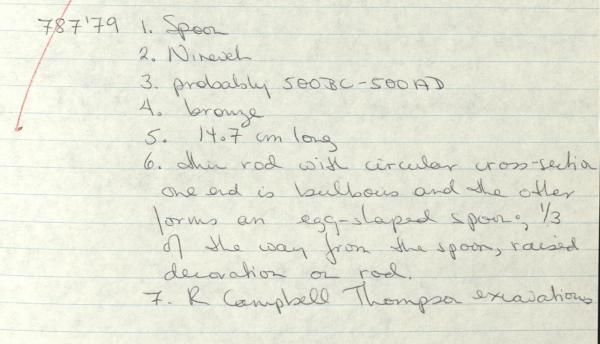 787'79 1. Spoon
2. Nineveh
3. probably 500BC-500AD
4. bronze
5. 14.7 cm long
6. thin rod with circular cross-section
one end is bulbous and the other
forms an egg-shaped spoon; 1/3
of the way from the spoon, raised
decoration on rod.
7. R Campbell Thompson excavations